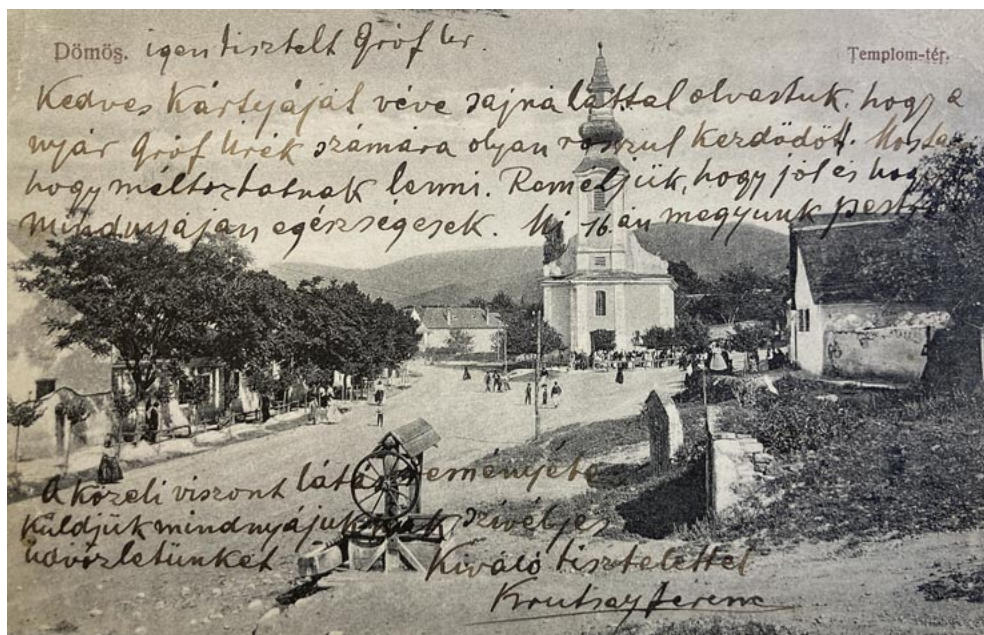 Dömös. igen tisztelt Gróf Úr. Templom-tér.
Kedves Kártyáját véve sajnálattal olvastuk, hogy a
nyár Gróf Urék számára olyan rosszul kezdődött. Most
hogy méltoztatnak lenni. Reméljük, hogy jól és hogy
mindnyáján egészségesek. Mi 16.án megyünk pestre
A közeli viszont látás reményébe
küldjük mindnyájuknak szivélyes
üdvözletünket Kiváló tisztelettel
Krutsay Ferenc